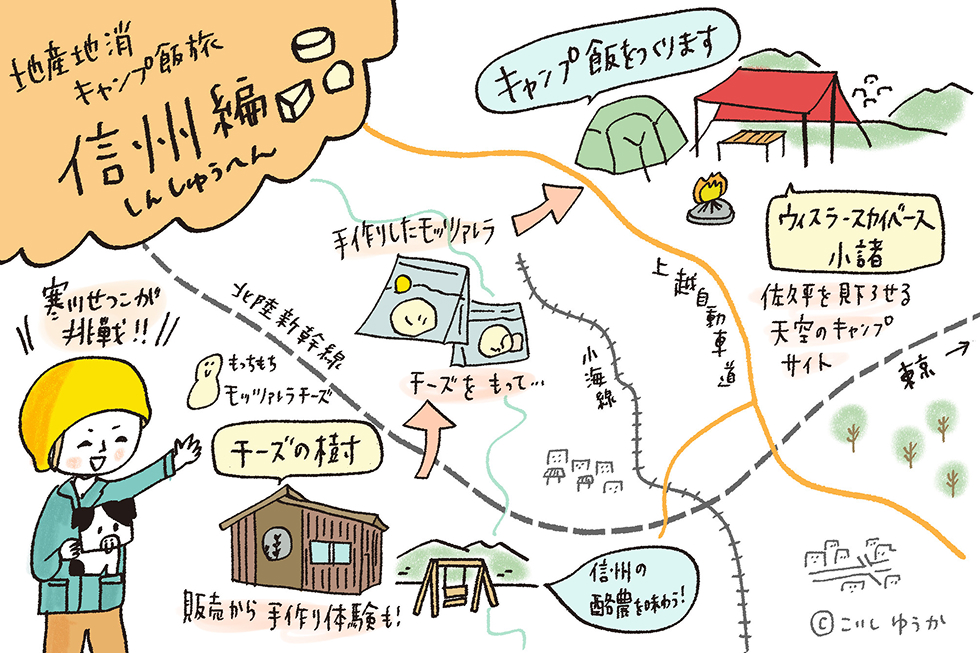 地産地消
キャンプ飯旅
信州編
しんしゅうへん
キャンプ飯をつくります
ウィスラースカイベース
小諸
佐久平を見下ろせる
天空のキャンプ
サイト
手作りしたモッツァレラ
チーズをもって…
上越自動車道
小海線
北陸新幹線
東京
寒川せつこが
挑戦!!
もっちもち
モッツァレラチーズ
チーズの樹
販売から手作り体験も!
信州の
酪農を味わう!
©こいしゆうか